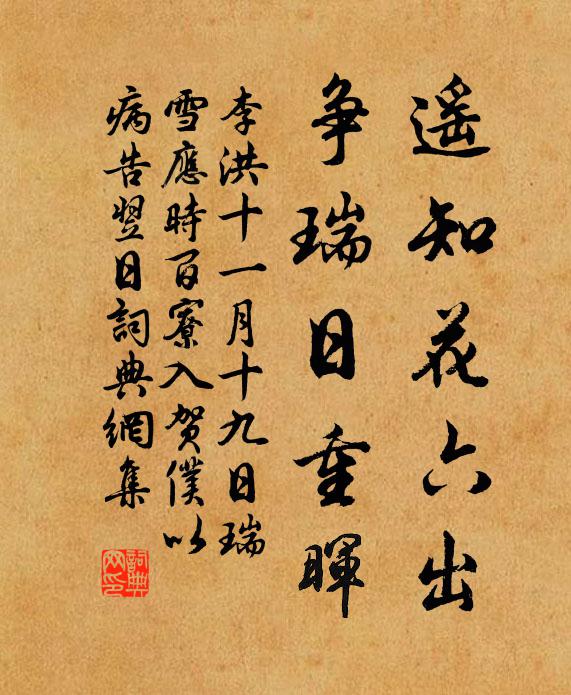 遥知花六出
争瑞日重暉
李洪十一月十九日瑞
雪應時百寮入贺僕以
病告翌日詞典網集
詞典网印